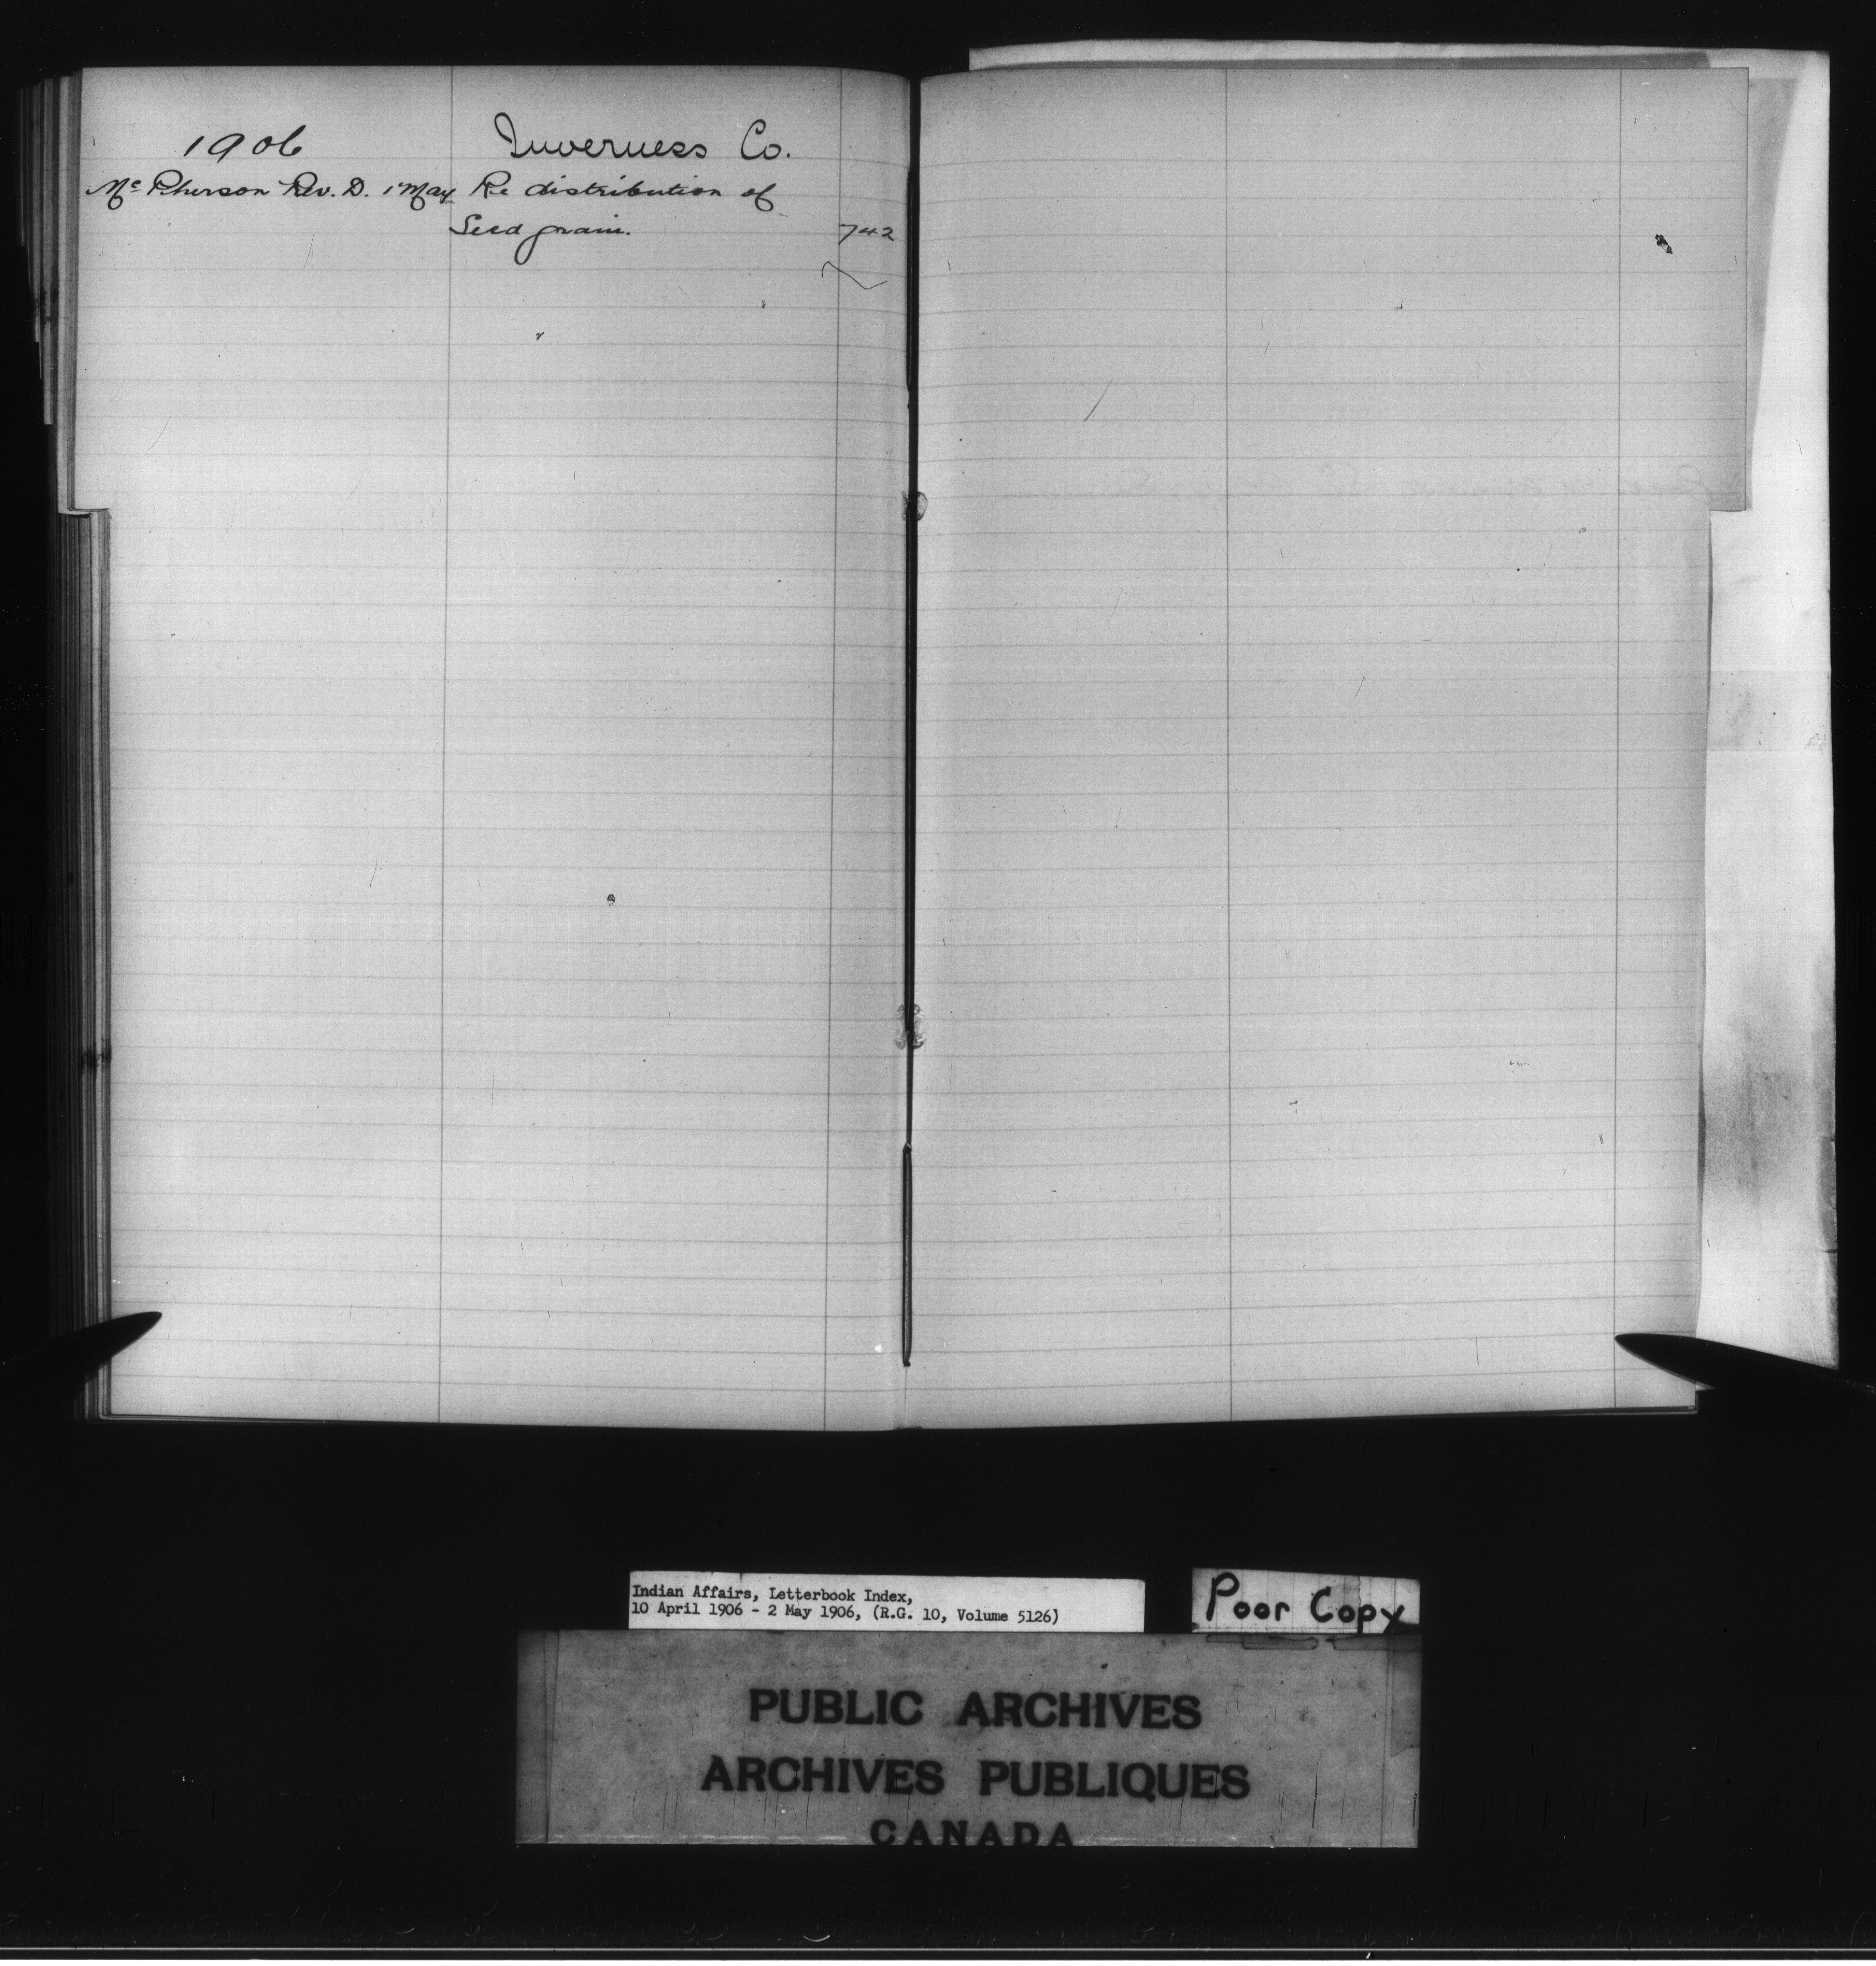 1906 Inverness Co.
Mc Pherson Rev. D. 1 May Re distribution of
Seed grain. 742
Indian Affairs, Letterbook Index,
10 April 1906 - 2 May 1906, (R.G. 10, Volume 5126)
Poor Copy
PUBLIC ARCHIVES
ARCHIVES PUBLIQUES
CANADA